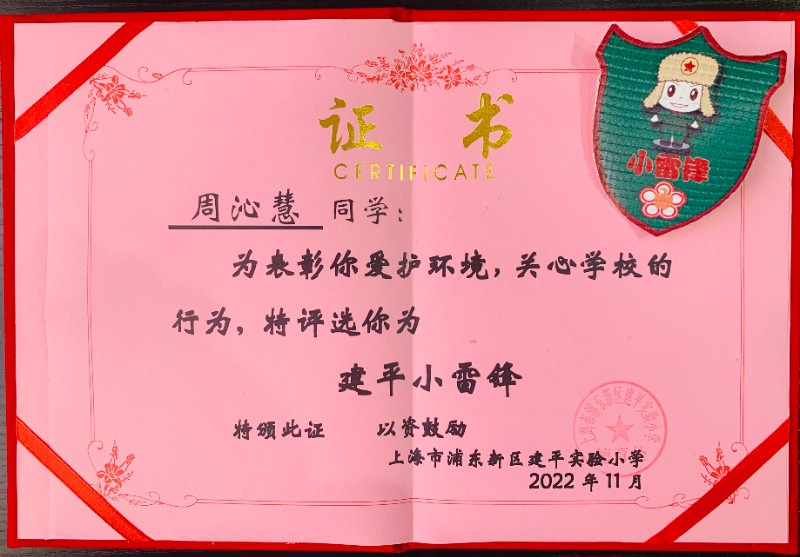 证 书
CERTIFICATE
小雷锋
周沁慧 同学：
为表彰你爱护环境，关心学校的
行为，特评选你为
建平小雷锋
特颁此证 以资鼓励
上海市浦东新区建平实验小学
2022 年 11 月
上海市浦东新区建平实验小学